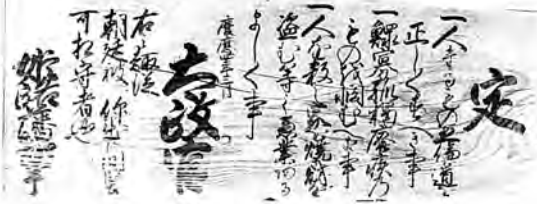 定
一人たるもの五倫の道を
正しくすへき事
一鰥寡孤独廃疾の
ものを憫むへき事
一人を殺し家を焼き財を
盗む等の悪業ある
ましく事
慶應四年三月
太政官
右之趣従
朝廷被 仰出候間
可相守者也